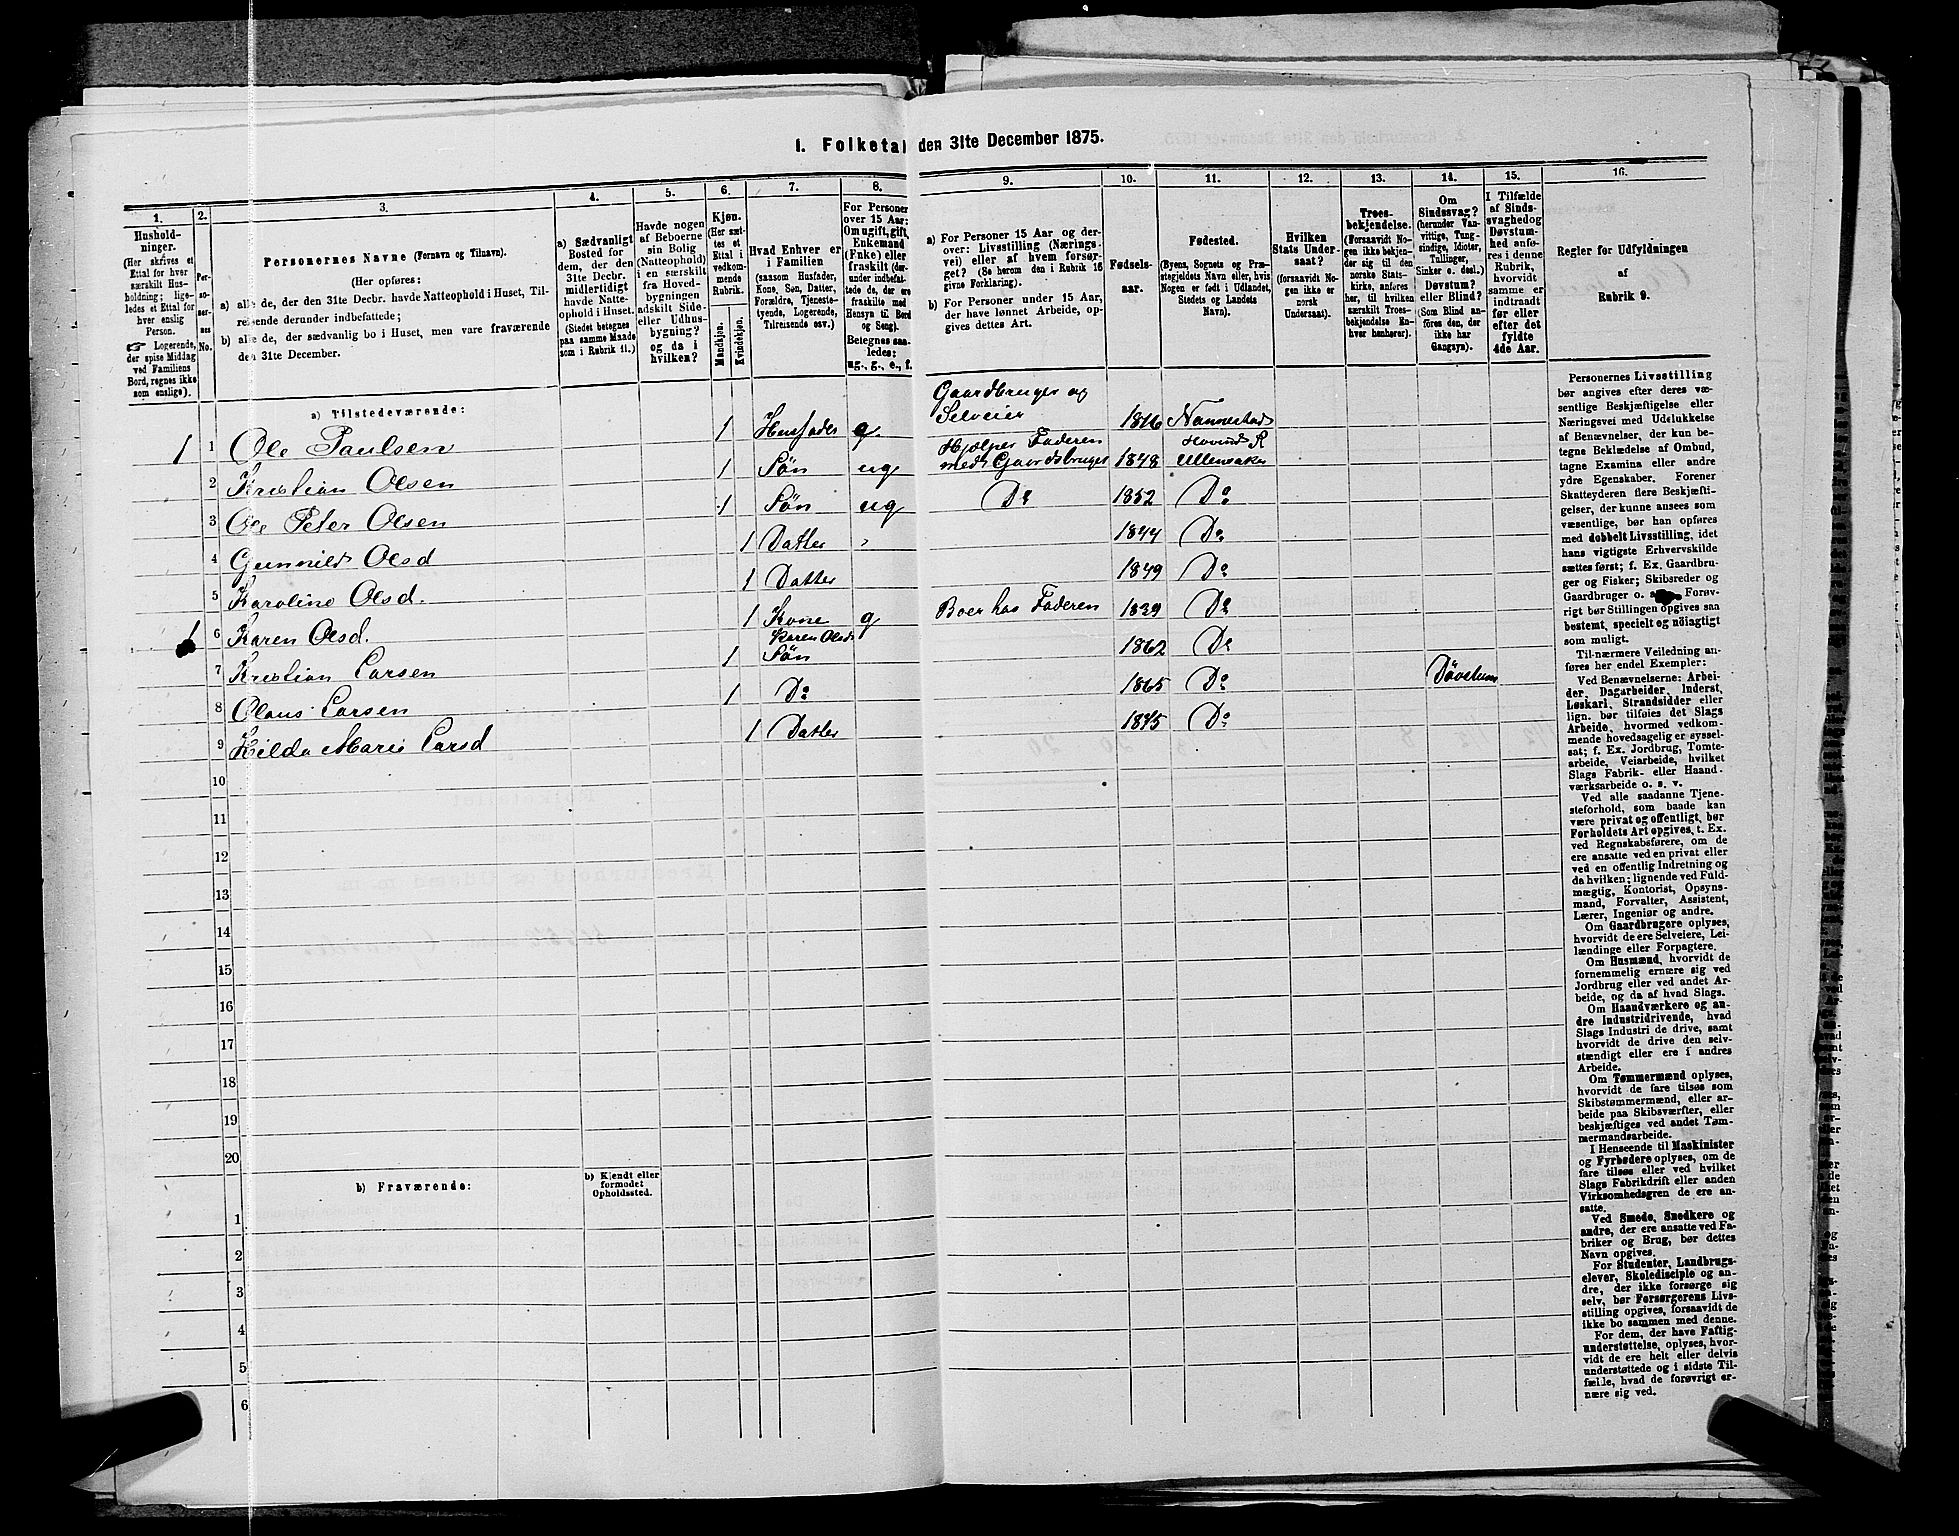 1. Folketal den 31te December 1875.
1.
Hushold-
ninger.
(Her skrives et
Ettal for hver
særskilt Hus-
holdning; lige-
ledes et Ettal for
hver enslig
Person.
☞ Logerende,
der spise Middag
ved Familiens
Bord, regnes ikke
som enslige).
2.
Per-
so-
ner-
nes
No.
3.
Personernes Navne (Fornavn og Tilnavn).
(Her opføres:
a) alle de, der den 31te Decbr. havde Natteophold i Huset, Til-
reisende derunder indbefattede;
b) alle de, der sædvanlig bo i Huset, men vare fraværende
den 31te December.
4.
a) Sædvanligt
Bosted for
dem, der den
31te Decbr.
midlertidigt
havde Natte-
ophold i Huset.
(Stedet betegnes
paa samme Maade
som i Rubrik 11.)
5.
Havde nogen
af Beboerne
sin Bolig
(Natteophold)
i en særskilt
fra Hoved-
bygningen
adskilt Side-
eller Udhus-
bygning?
og da i
hvilken?
6.
Kjøn.
(Her sæt-
tes et
Ettal i
vedkom-
mende
Rubrik.
Mandkjøn.
Kvindekjøn.
7.
Hvad Enhver er
i Familien
(saasom Husfader,
Kone, Søn, Datter,
Forældre, Tjeneste-
tyende, Logerende,
Tilreisende osv.)
8.
For Personer
over 15 Aar:
Om ugift, gift,
Enkemand
(Enke) eller
fraskilt (der-
under indbefat-
tede de, der ere
fraskilte med
Hensyn til Bord
og Seng).
Betegnes saa-
ledes:
ug., g., e., f.
9.
a) For Personer 15 Aar og der-
over: Livsstilling (Nærings-
vei) eller af hvem forsør-
get? (Se herom den i Rubrik 16
givne Forklaring).
b) For Personer under 15 Aar,
der have lønnet Arbeide, op-
gives dettes Art.
10.
Fødsels-
aar.
11.
Fødested.
(Byens, Sognets og Præ-
stegjeldets Navn eller, hvis
Nogen er født i Udlandet,
Stedets og Landets
Navn).
12.
Hvilken
Stats Under-
saat?
(forsaavidt No-
gen ikke er
norsk
Undersaat).
13.
Troes-
bekjendelse.
(Forsaavidt No-
gen ikke bekjen-
der sig til den
norske Stats-
kirke, anføres
her, til hvilken
særskilt Troes-
bekjendelse En-
hver henhører).
14.
Om
Sindssvag?
(herunder Van-
vittige, Tung-
sindige, Idioter,
Tullinger,
Sinker o. desl.)
Døvstum?
eller Blind?
(Som Blind an-
føres den, der
ikke har
Gangsyn).
15.
I Tilfælde
af Sinds-
svaghed og
Døvstum-
hed anfø-
res i denne
Rubrik,
hvorvidt
samme er
indtraadt
før eller
efter det
fyldte
4de Aar.
16.
Regler for Udfyldningen
af
Rubrik 9.
a) Tilstedeværende:
1 1 Ole Paulsen 1 Husfader g. Gaardbruger og Selveier 1816 Nannestad
2 Kristian Olsen 1 Søn ug Hjælper Faderen med Gaardsbruget 1848 Hovind S. Ullensaker
3 Ole Peter Olsen 1 Søn ug Do 1852 Do
4 Gunnild Olsd 1 Datter 1844 Do
5 Karoline Olsd. 1 Datter 1849 Do
1 6 Karen Olsd. 1 Kone g Boer hos Faderen 1839 Do
7 Kristian Larsen 1 Karen Olsds Søn 1862 Do
8 Olaus Larsen 1 Do 1865 Do Døvstum
9 Hilda Marie Larsd 1 Datter 1875 Do
10
11
12
13
14
15
16
17
18
19
20
b) Fraværende:
b) Kjendt eller
formodet
Opholdssted.
1
2
3
4
5
6
Personernes Livsstilling
bør angives efter deres væ-
sentlige Beskjæftigelse eller
Næringsvei med Udslukkelse
af Benævnelser, der kun be-
tegne Beklædelse af Ombud,
tagne Examina eller andre
ydre Egenskaber. Forener
Skatteyderen flere Beskjæfti-
gelser, der kunne ansees som
væsentlige, bør han opføres
med dobbelt Livsstilling, idet
hans vigtigste Erhvervskilde
sættes først; f. Ex. Gaardbru-
ger og Fisker; Skibsreder og
Gaardbruger o. s. v. Forøv-
rigt bør Stillingen opgives saa
bestemt, specielt og nöiagtigt
som muligt.
Til nærmere Veiledning an-
føres her endel Exempler:
Ved Benævnelserne: Arbei-
der, Dagarbeider, Inderst,
Løskarl, Strandsidder eller
lign. bør tilføies det Slags
Arbeide, hvormed vedkom-
mende hovedsagelig er syssel-
sat; f. Ex. Jordbrug, Tomte-
arbeide, Veiarbeide, hvilket
Slags Fabrik- eller Haand-
værksarbeide o. s. v.
Ved alle saadanne Tjene-
steforhold, som baade kan
være privat og offentligt, bør
Forholdets Art opgives, t. Ex.
ved Regnskabsførere, om de
ere ansatte ved en privat eller
ved en offentlig Indretning og
da hvilken; lignende ved Fuld-
mægtig, Kontorist, Opsyns-
mand, Forvalter, Assistent,
Lærer, Ingeniør og andre.
Om Gaardbrugere oplyses,
hvorvidt de ere Selveiere, Lei-
lændinge eller Forpagtere.
Om Husmænd, hvorvidt de
fornemmelig ernære sig ved
Jordbrug eller ved andet Ar-
beide, og da af hvad Slags.
Om Haandværkere og an-
dre Industridrivende, hvad
Slags Industri de drive, samt
hvorvidt de drive den selv-
stændigt eller ere i andres
Arbeide.
Om Tømmermænd oplyses,
hvorvidt de fare tilsøs som
Skibstømmermænd, eller ar-
beide paa Skibsværfter, eller
beskjæftiges ved andet Tøm-
mermandsarbeide.
I Henseende til Maskinister
og Fyrbødere oplyses, om de
fare tilsøs eller ved hvilket
Slags Fabrikdrift eller anden
Virksomhedsgren de ere an-
satte.
Ved Smede, Snedkere og
andre, der ere ansatte ved Fa-
briker og Brug, bør dettes
Navn opgives.
For Studenter, Landbrugs-
elever, Skoledisciple og an-
dre, der ikke forsørge sig
selv, bør Forsørgerens Livs-
stilling opgives, forsaavidt de
ikke bo sammen med denne.
For dem, der have Fattig-
understøttelse, oplyses, hvor-
vidt de ere helt eller delvis
understøttede og i sidste Til-
fælde, hvad de forøvrigt er-
nære sig ved.